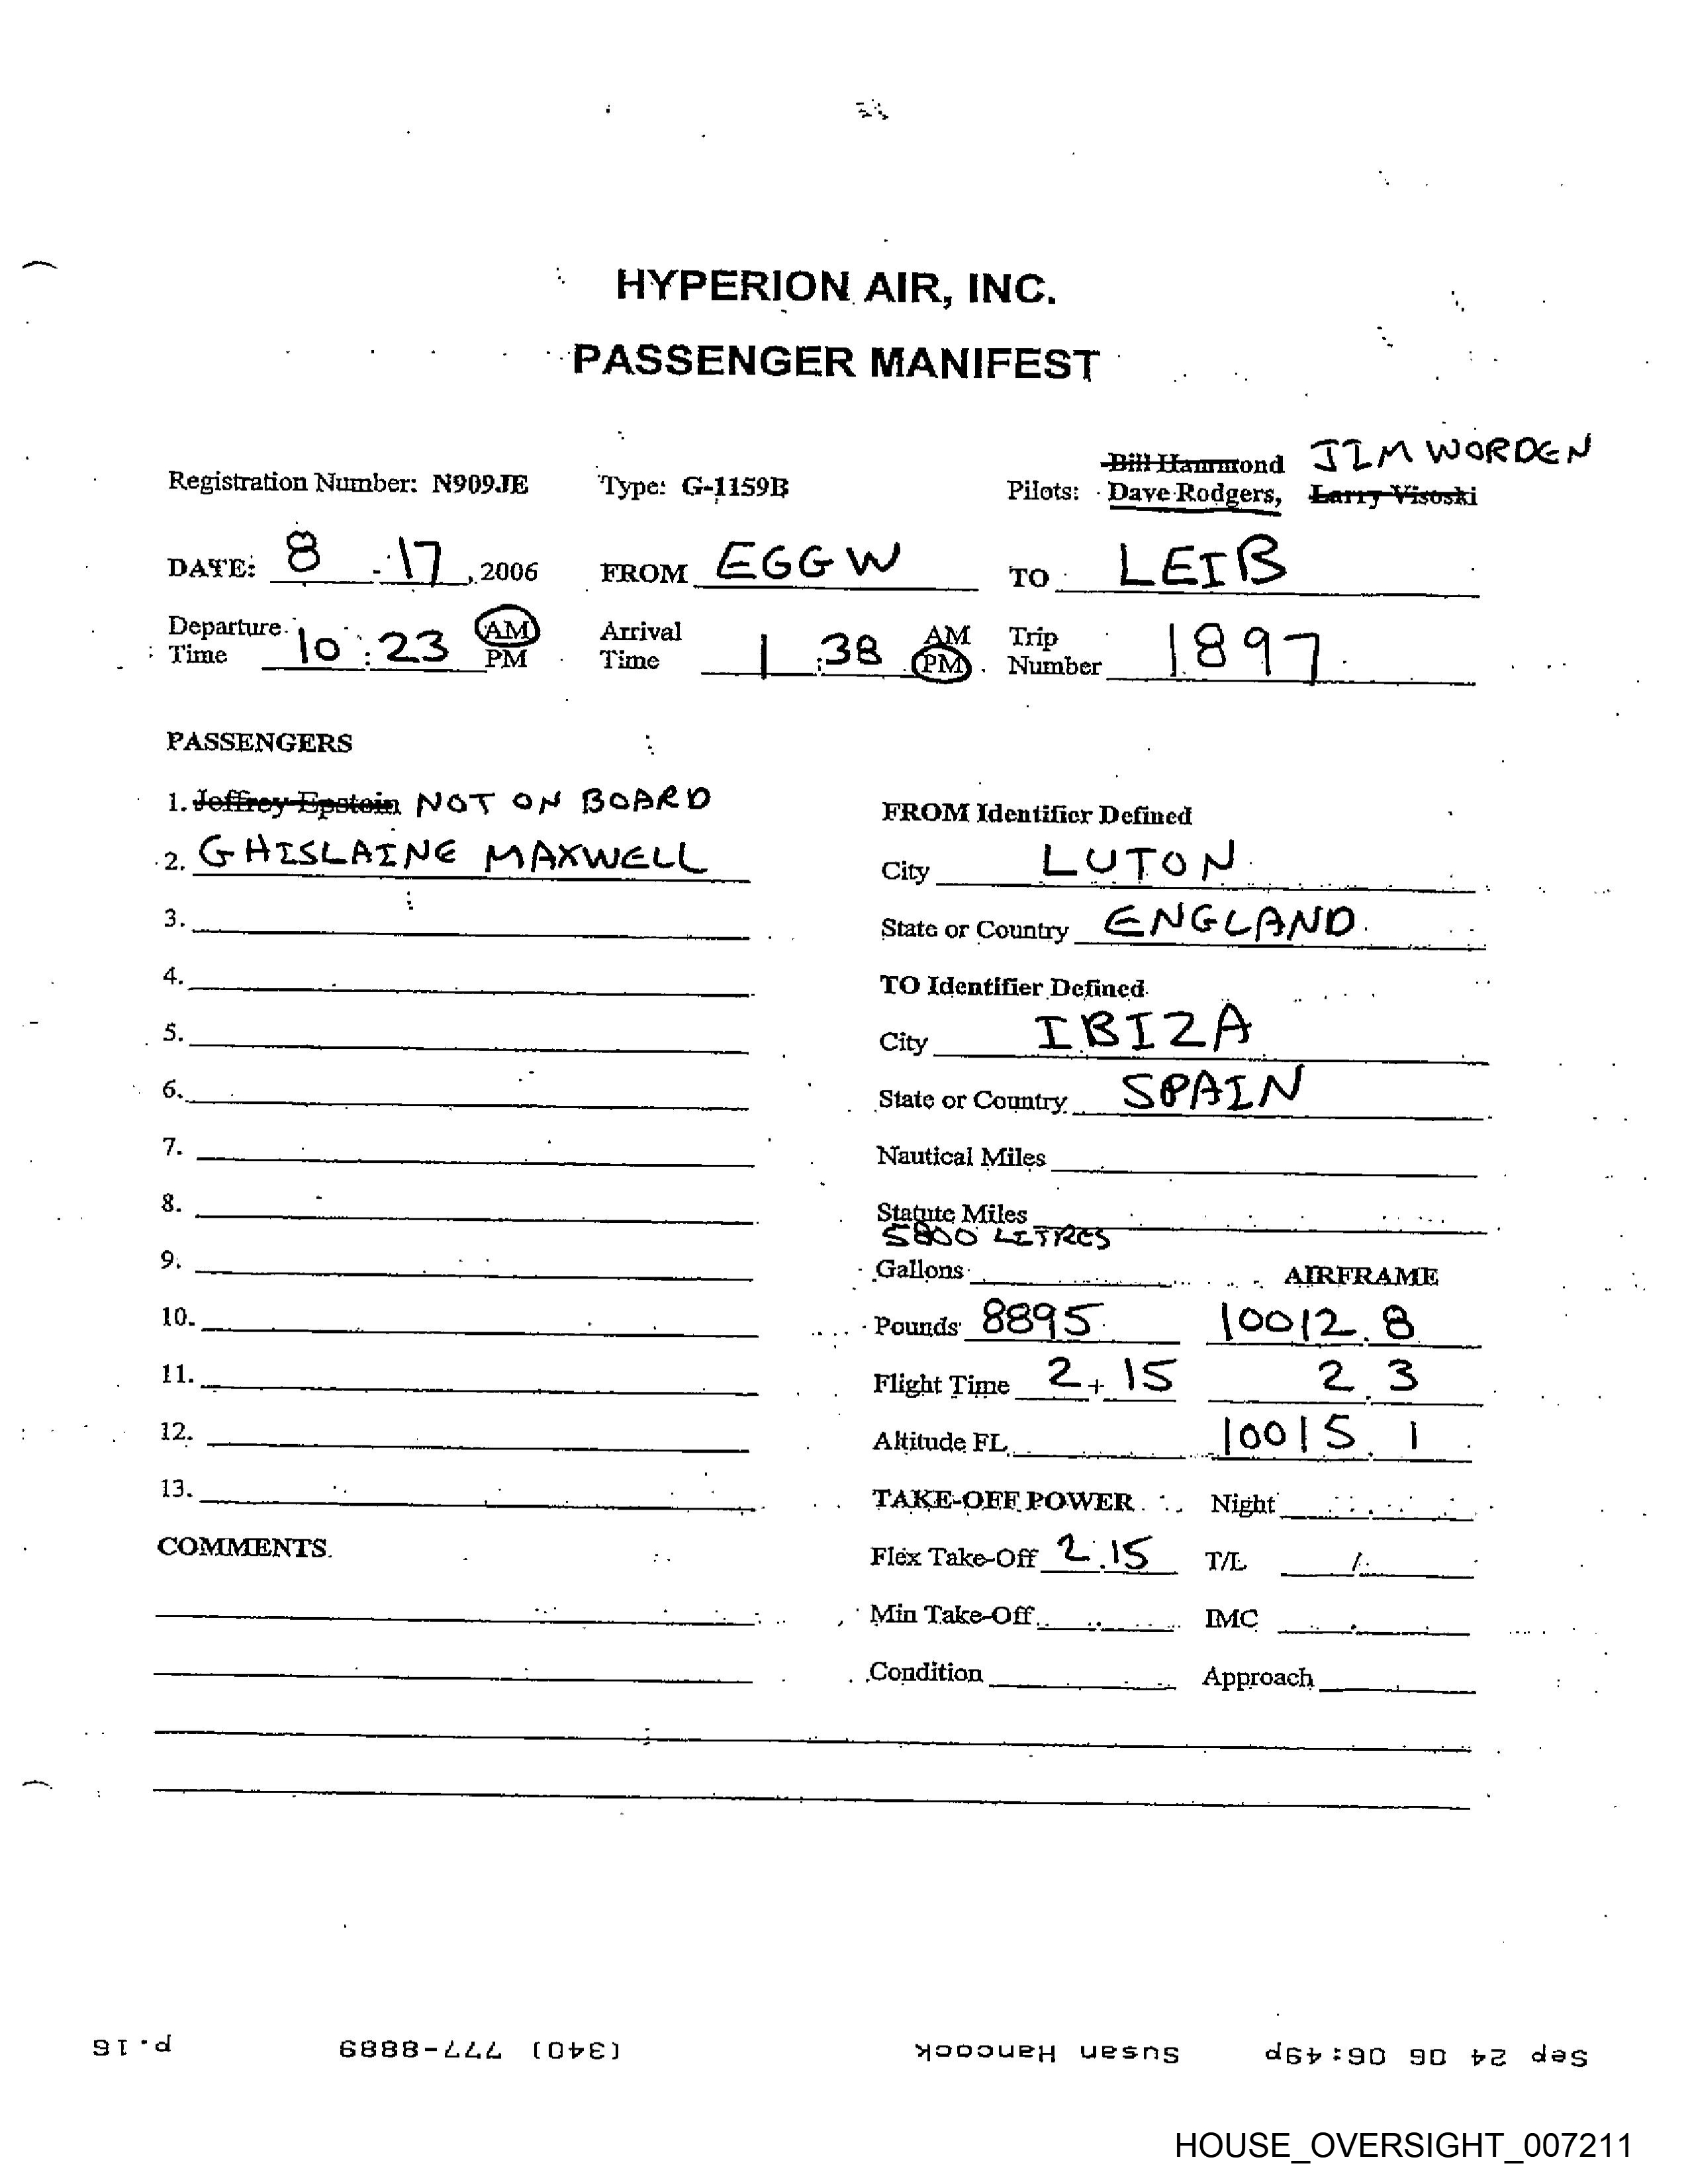 HYPERION AIR, INC.
PASSENGER MANIFEST
Bill Hammond JIM WORDEN
Registration Number: N909JE Type: G-1159B Pilots: Dave Rodgers, Larry Visoski
DATE: 8 - 17, 2006 FROM EGGW TO LEIB
Departure Time 10:23 AM PM Arrival Time 1:38 AM PM Trip Number 1897
PASSENGERS
1. Jeffrey Epstein NOT ON BOARD
2. GHISLAINE MAXWELL
3.
4.
5.
6.
7.
8.
9.
10.
11.
12.
13.
COMMENTS
FROM Identifier Defined
City LUTON
State or Country ENGLAND
TO Identifier Defined
City IBIZA
State or Country SPAIN
Nautical Miles
Statute Miles
5800 LITRES
Gallons AIRFRAME
Pounds 8895 10012.8
Flight Time 2+15 2.3
Altitude FL 10015.1
TAKE-OFF POWER Night
Flex Take-Off 2.15 T/L /
Min Take-Off IMC
Condition Approach
Sep 24 06 06:49p Susan Hancock (340) 777-8889 p.16
HOUSE_OVERSIGHT_007211